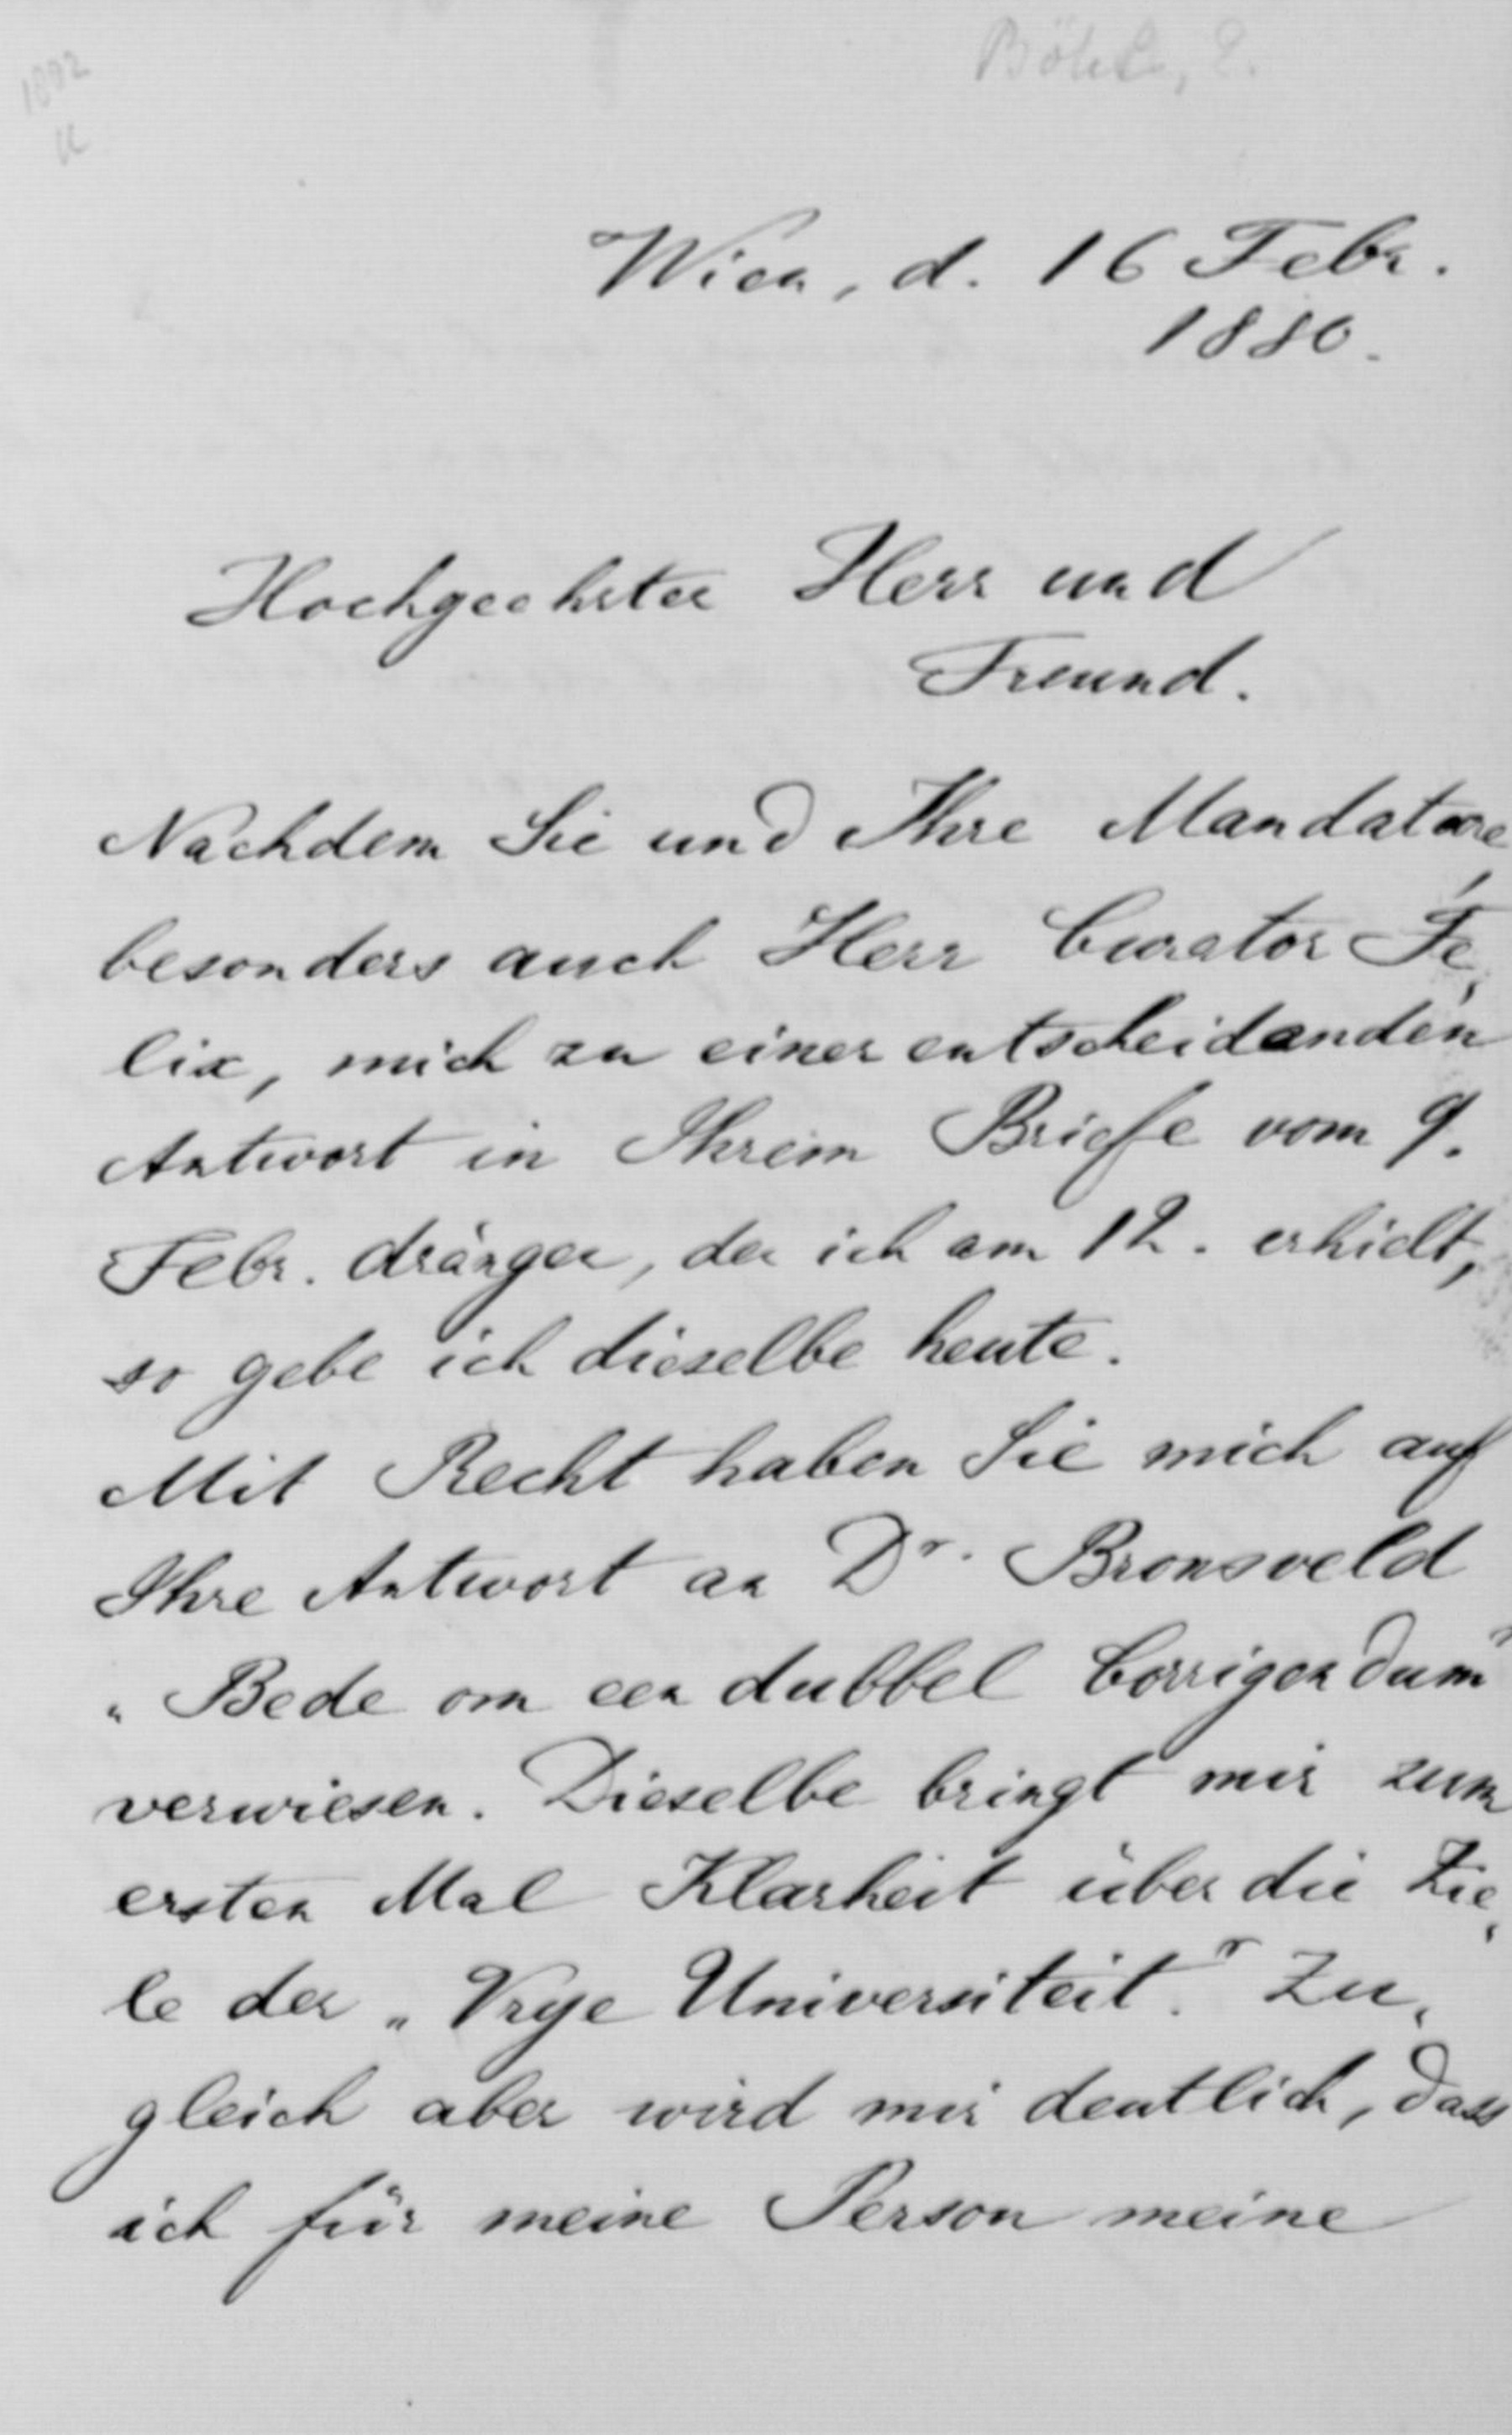 1892
K
Böhl, E.
Wien, d. 16 Febr.
1880.
Hochgeehrter Herr und
Freund.
Nachdem Sie und Ihre Mandatare,
besonders auch Herr Curator Fe,
lix, mich zu einer entscheidenden
Antwort in Ihrem Briefe vom 9.
Febr. drängen, den ich am 12. erhielt,
so gebe ich dieselbe heute.
Mit Recht haben Sie mich auf
Ihre Antwort an Dr. Bronsveld
„Bede om een dubbel Corrigendum"
verwiesen. Dieselbe bringt mir zum
ersten Mal Klarheit über die Zie,
le der „Vrye Universiteit." Zu,
gleich aber wird mir deutlich, dass
ich für meine Person meine